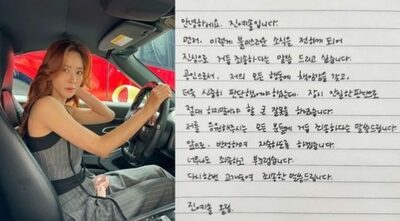 안녕하세요, 진예솔입니다.
먼저, 이렇게 불미스러운 소식을 전하게 되어
진심으로 거듭 죄송하다는 말씀 드리고 싶습니다.
공인으로서, 저의 모든 행동에 책임감을 갖고,
더욱 신중히 판단했어야 했는데, 잠시 안일한 판단으로
절대 하지말아야 할 큰 잘못을 하였습니다.
저를 응원해주시는 모든 분들께 거듭 죄송하다는 말씀드립니다.
앞으로, 반성하며 자숙하도록 하겠습니다.
너무나도 죄송하고 부끄럽습니다.
다시한번 고개숙여 죄송한 말씀드립니다.
진예솔 올림.